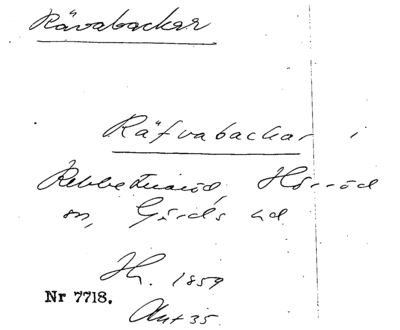 Rävabackar
Räfvabackar i
Rebbetuaröd, Hörröd
sn, Gärds hd
Hr. 1859
Nr 7718.
Akt 35